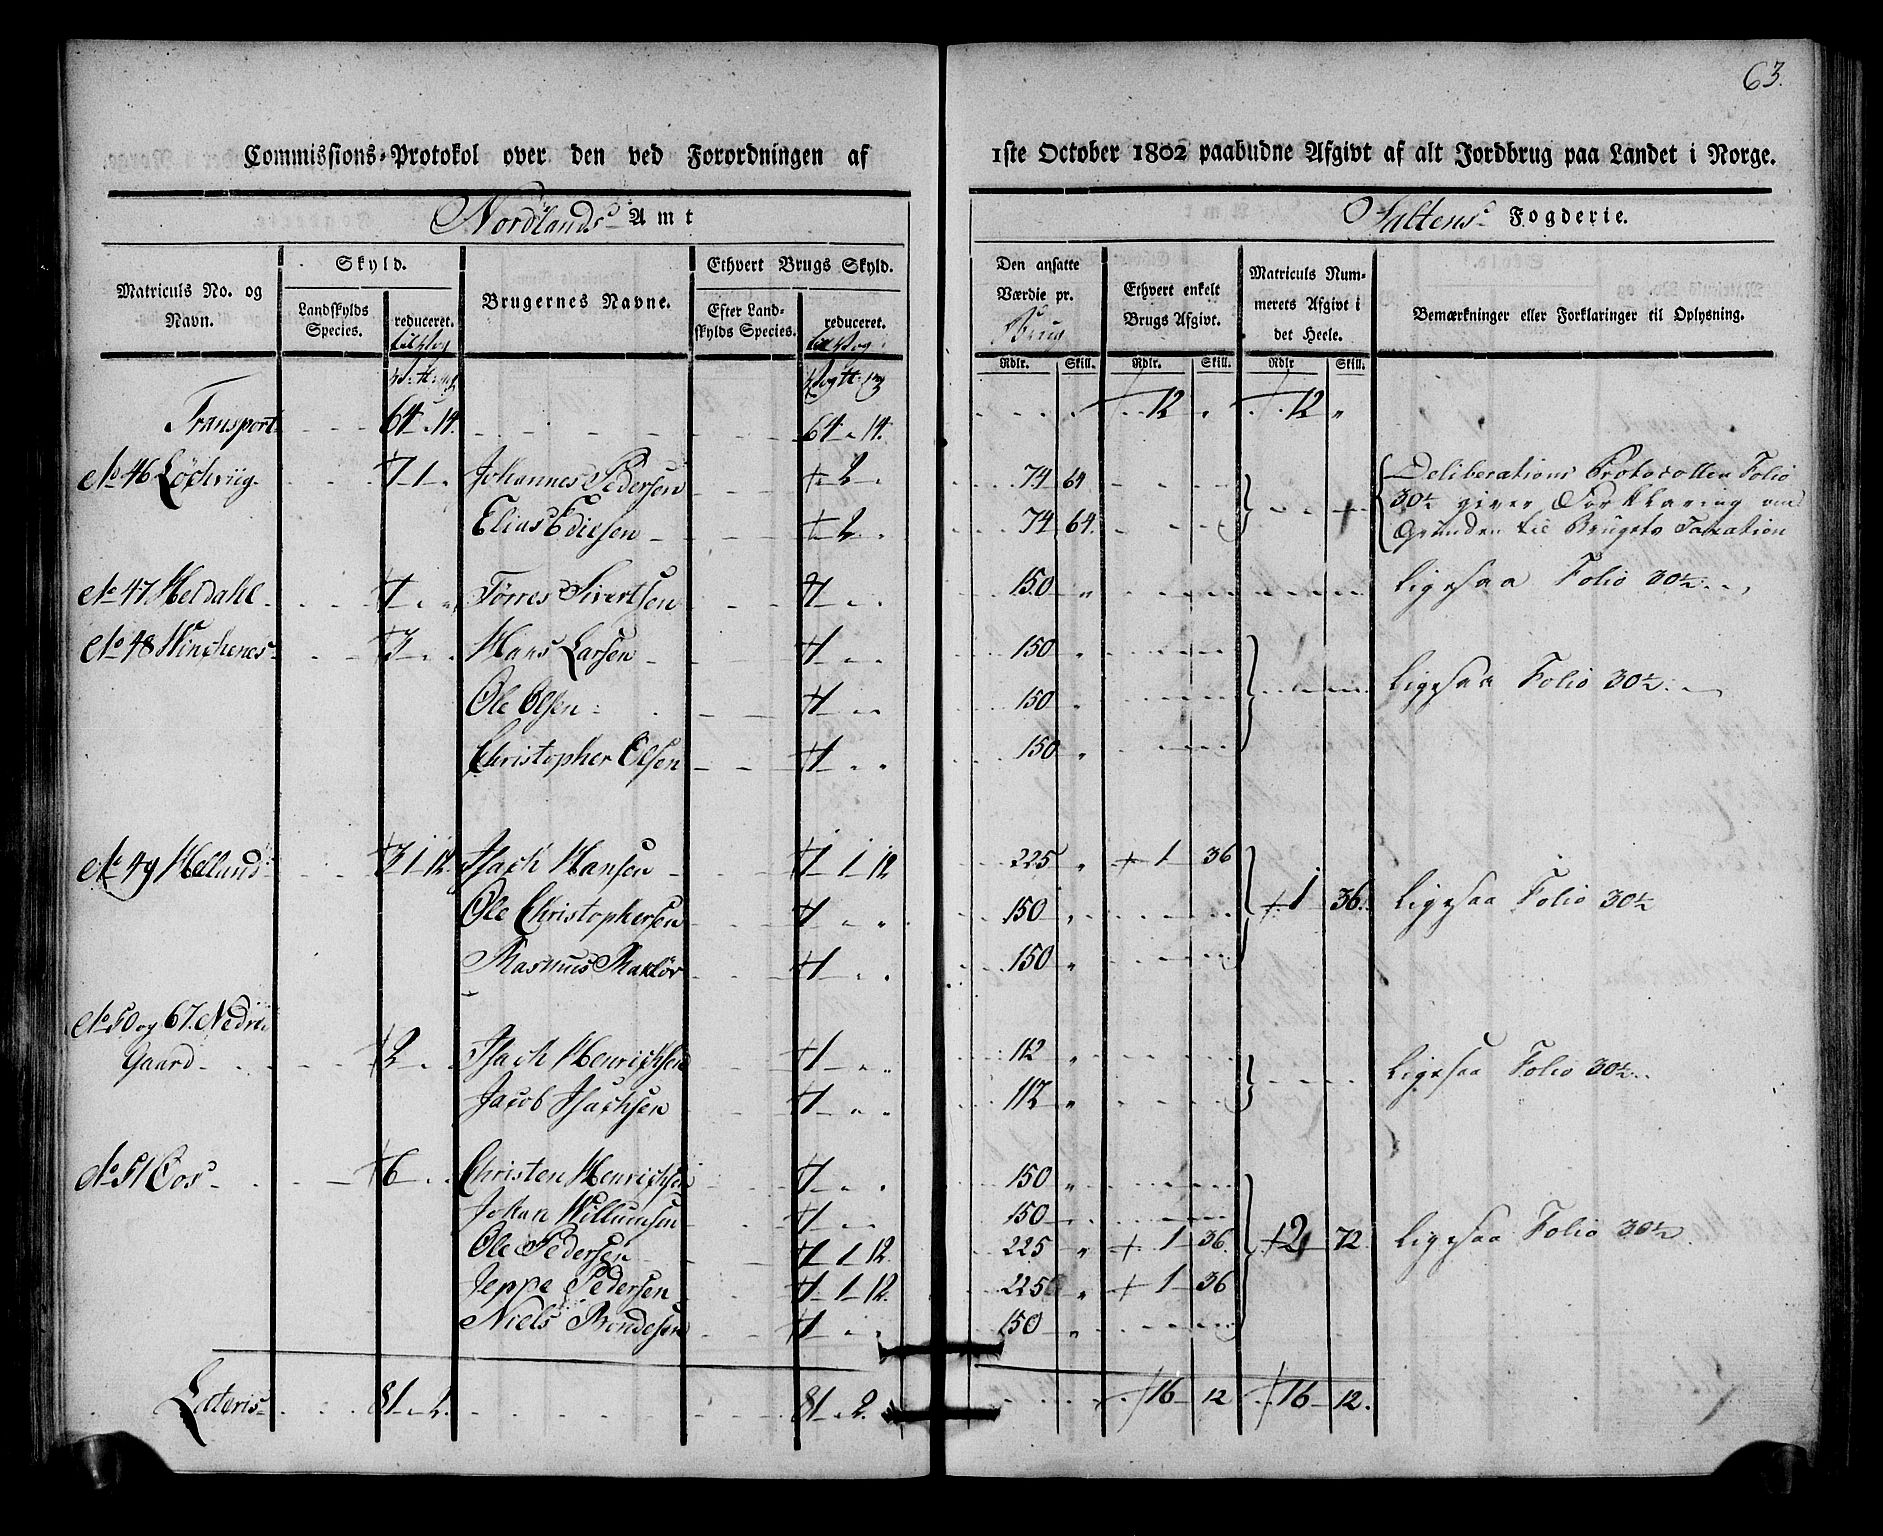 63.
Commissions-Protokol over den ved Forordningen af 1ste October 1802 paabudne Afgivt af alt Jordbrug paa Landet i Norge.
Nordlands Amt Saltens Fogderie.
Matriculs No. og Navn.
Skyld.
Landskylds Species.
reduceret.
Brugernes Navne.
Ethvert Brugs Skyld.
Efter Landskylds Species.
reduceret.
Den ansatte Værdie pr. Brug
Ethvert enkelt Brugs Afgivt.
Matriculs Nummerets Afgivt i det Heele.
Bemærkninger eller Forklaringer til Oplysning.
Rdlr. Skill. Rdlr. Skill. Rdlr Skill.
Transport 64 " 14. 64 " 14. 12 " 12 "
No 46 1 Johannes Pedersen 2 74 64 Deliberations Protocollen Folio
30½ giver Forklaring om
Elias 2 74 64. Grunden til Brugets Taxation
No 47 Meldahl 1 Tørres Sivertsen 1 150 " Ligesaa Folio 30½
No 48 3 Hans Larsen 1 150 " Ligesaa Folio 30½
Ole Olsen 1 150 "
Christopher Olsen 1 150 "
No 49 3 1 12. Isach Hansen 1 1 12 225 " 1 36 1 36. Ligesaa Folio 30½
Ole Christophersen 1 150 "
Rasmus 1 150 "
No 50 og 67. Nedre
Gaard 2 Isach Henrichsen 1 112 " Ligesaa Folio 30½
Jacob Isachsen 1 112 "
No 51 6 Christen Henrichsen 1 150 " 2 72. Ligesaa Folio 30½
Johan Willumsen 1 150
Ole Pedersen 1 1 12 225 " 1 36.
Jeppe Pedersen 1 1 12. 225 " 1 36
Niels 1 150 "
Lateris 81 " 2. 81 " 2. 16 12 16 12.